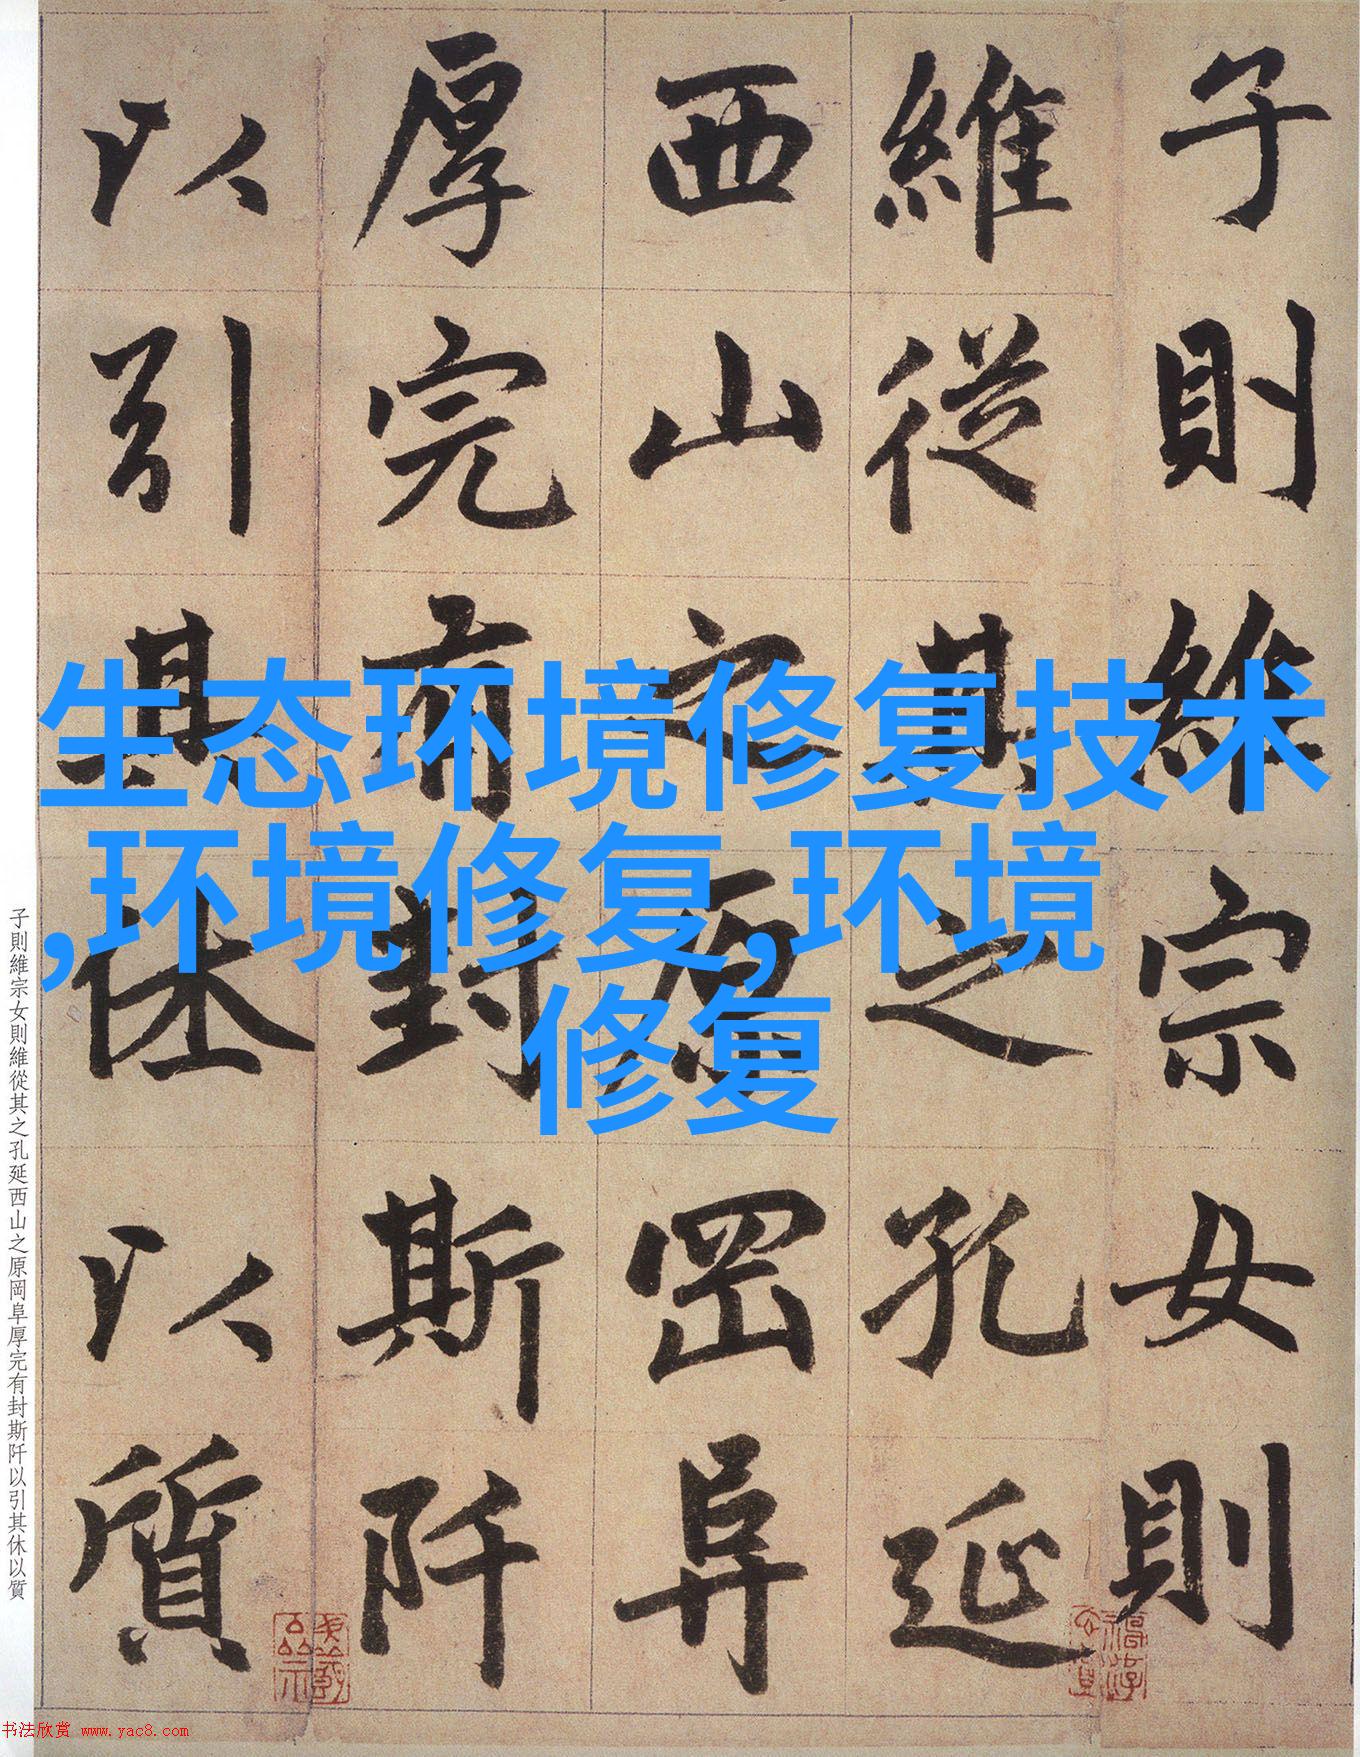 子則維宗女則
維從其之孔延
西山之原岡阜
厚完有封斯阡
以引其休以質
生态环境修复技术
,环境修复,环境
修复
子則維宗女則維從其之孔延西山之原岡阜厚完有封斯阡以引其休以質
书法欣赏 www.yac8.com